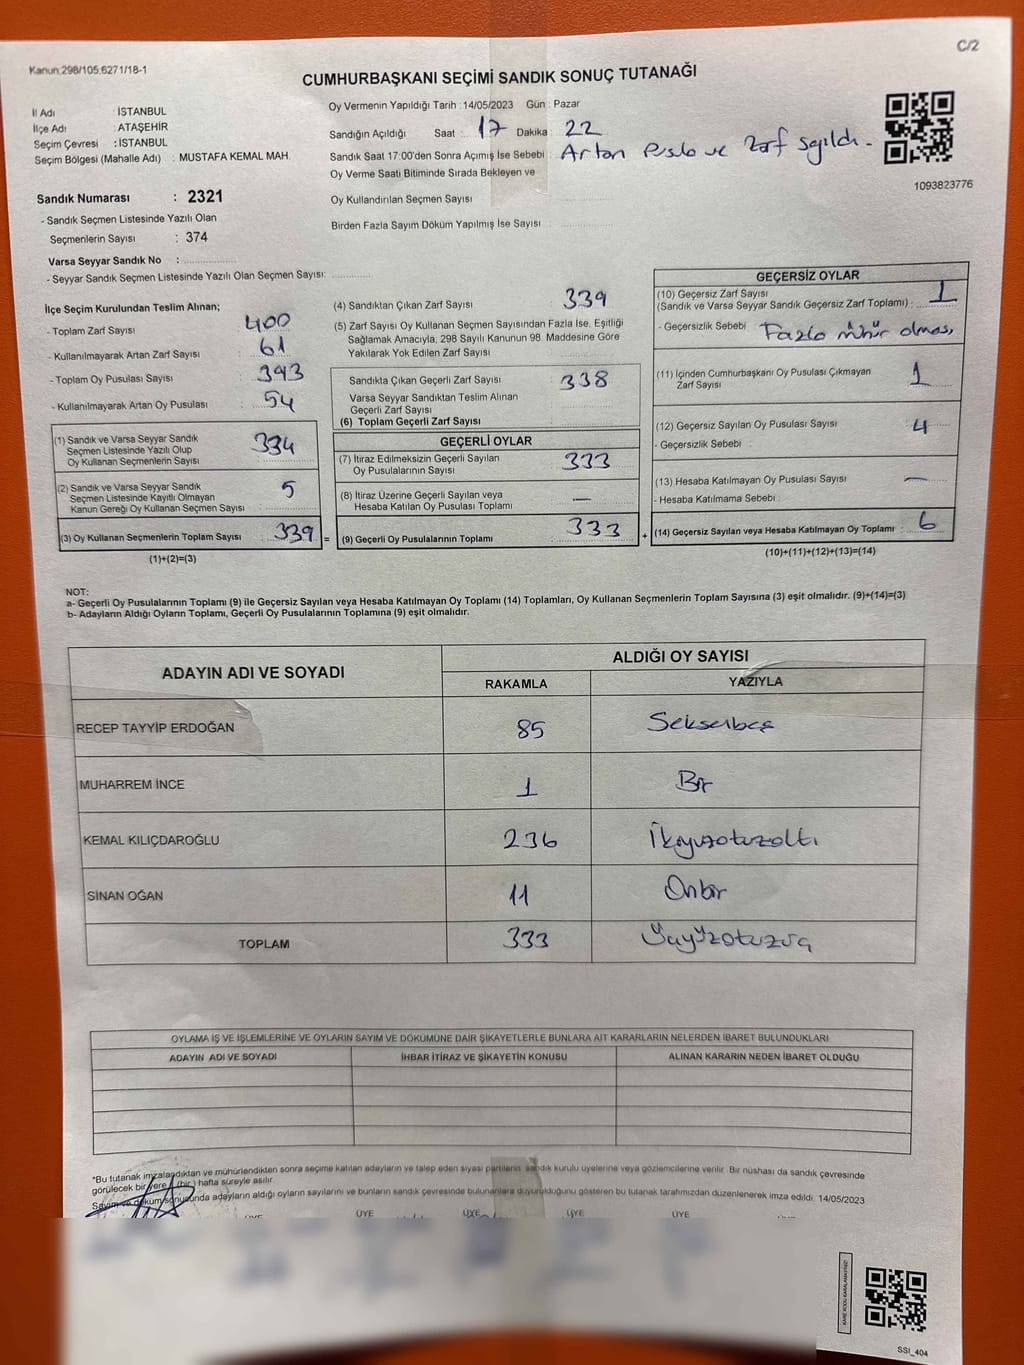 C/2
Kanun:298/105,6271/18-1
CUMHURBAŞKANI SEÇİMİ SANDIK SONUÇ TUTANAĞI
İl Adı : İSTANBUL
İlçe Adı : ATAŞEHİR
Seçim Çevresi : İSTANBUL
Seçim Bölgesi (Mahalle Adı) : MUSTAFA KEMAL MAH.
Oy Vermenin Yapıldığı Tarih : 14/05/2023 Gün : Pazar
Sandığın Açıldığı Saat : 17 Dakika : 22
Sandık Saat 17:00'den Sonra Açımış İse Sebebi : Artan Pusula ve Zarf sayıldı.
Oy Verme Saati Bitiminde Sırada Bekleyen ve
Oy Kullandırılan Seçmen Sayısı
Birden Fazla Sayım Döküm Yapılmış İse Sayısı
1093823776
Sandık Numarası : 2321
- Sandık Seçmen Listesinde Yazılı Olan
Seçmenlerin Sayısı : 374
Varsa Seyyar Sandık No :
- Seyyar Sandık Seçmen Listesinde Yazılı Olan Seçmen Sayısı:
İlçe Seçim Kurulundan Teslim Alınan;
- Toplam Zarf Sayısı : 400
- Kullanılmayarak Artan Zarf Sayısı : 61
- Toplam Oy Pusulası Sayısı : 393
- Kullanılmayarak Artan Oy Pusulası : 54
(1) Sandık ve Varsa Seyyar Sandık
Seçmen Listesinde Yazılı Olup
Oy Kullanan Seçmenlerin Sayısı : 334
(2) Sandık ve Varsa Seyyar Sandık
Seçmen Listesinde Kayıtlı Olmayan
Kanun Gereği Oy Kullanan Seçmen Sayısı : 5
(3) Oy Kullanan Seçmenlerin Toplam Sayısı : 339 =
(1)+(2)=(3)
(4) Sandıktan Çıkan Zarf Sayısı : 339
(5) Zarf Sayısı Oy Kullanan Seçmen Sayısından Fazla İse, Eşitliği
Sağlamak Amacıyla, 298 Sayılı Kanunun 98. Maddesine Göre
Yakılarak Yok Edilen Zarf Sayısı :
Sandıkta Çıkan Geçerli Zarf Sayısı : 338
Varsa Seyyar Sandıktan Teslim Alınan
Geçerli Zarf Sayısı
(6) Toplam Geçerli Zarf Sayısı :
GEÇERLİ OYLAR
(7) İtiraz Edilmeksizin Geçerli Sayılan
Oy Pusulalarının Sayısı : 333
(8) İtiraz Üzerine Geçerli Sayılan veya
Hesaba Katılan Oy Pusulası Toplamı : —
(9) Geçerli Oy Pusulalarının Toplamı : 333 +
GEÇERSİZ OYLAR
(10) Geçersiz Zarf Sayısı
(Sandık ve Varsa Seyyar Sandık Geçersiz Zarf Toplamı) : 1
- Geçersizlik Sebebi : Fazla mühür olması
(11) İçinden Cumhurbaşkanı Oy Pusulası Çıkmayan
Zarf Sayısı : 1
(12) Geçersiz Sayılan Oy Pusulası Sayısı : 4
- Geçersizlik Sebebi :
(13) Hesaba Katılmayan Oy Pusulası Sayısı : —
- Hesaba Katılmama Sebebi :
(14) Geçersiz Sayılan veya Hesaba Katılmayan Oy Toplamı : 6
(10)+(11)+(12)+(13)=(14)
NOT:
a- Geçerli Oy Pusulalarının Toplamı (9) ile Geçersiz Sayılan veya Hesaba Katılmayan Oy Toplamı (14) Toplamları, Oy Kullanan Seçmenlerin Toplam Sayısına (3) eşit olmalıdır. (9)+(14)=(3)
b- Adayların Aldığı Oyların Toplamı, Geçerli Oy Pusulalarının Toplamına (9) eşit olmalıdır.
ADAYIN ADI VE SOYADI ALDIĞI OY SAYISI
RAKAMLA YAZIYLA
RECEP TAYYİP ERDOĞAN 85 Seksenbeş
MUHARREM İNCE 1 Bir
KEMAL KILIÇDAROĞLU 236 İkiyüzotuzaltı
SİNAN OĞAN 11 Onbir
TOPLAM 333 Üçyüzotuzüç
OYLAMA İŞ VE İŞLEMLERİNE VE OYLARIN SAYIM VE DÖKÜMÜNE DAİR ŞİKAYETLERLE BUNLARA AİT KARARLARIN NELERDEN İBARET BULUNDUKLARI
ADAYIN ADI VE SOYADI İHBAR İTİRAZ VE ŞİKAYETİN KONUSU ALINAN KARARIN NEDEN İBARET OLDUĞU
*Bu tutanak imzalandıktan ve mühürlendikten sonra seçime katılan adayların ve talep eden siyasi partilerin sandık kurulu üyelerine veya gözlemcilerine verilir. Bir nüshası da sandık çevresinde
görülecek bir yere 1 (bir) hafta süreyle asılır.
Sayım ve döküm sonusunda adayların aldığı oyların sayılarını ve bunların sandık çevresinde bulunanlara duyurulduğunu gösteren bu tutanak tarafımızdan düzenlenerek imza edildi. 14/05/2023
ÜYE ÜYE ÜYE ÜYE
SSI_404